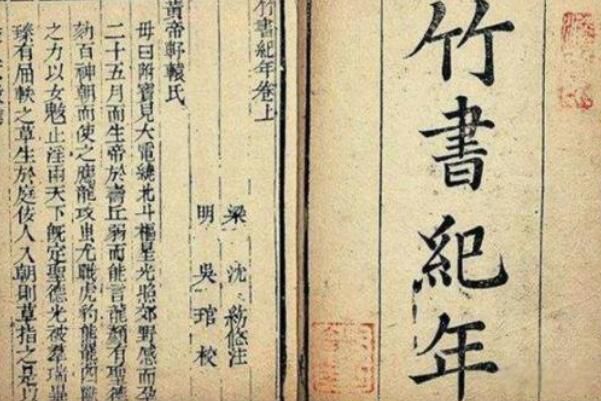 竹書紀年
竹書紀年卷上
梁 沈 約附注
明 吳 琯 校
黃帝軒轅氏
母曰附寶見大電繞北斗樞星光照郊野感而孕
二十五月而生帝於壽丘弱而能言龍顏有聖德
劾百神朝而使之應龍攻蚩尤戰虎豹熊羆四獸
之力以女魃止淫雨天下既定聖德光被羣瑞畢
臻有屈軼之草生於庭佞人入朝則草指之是以